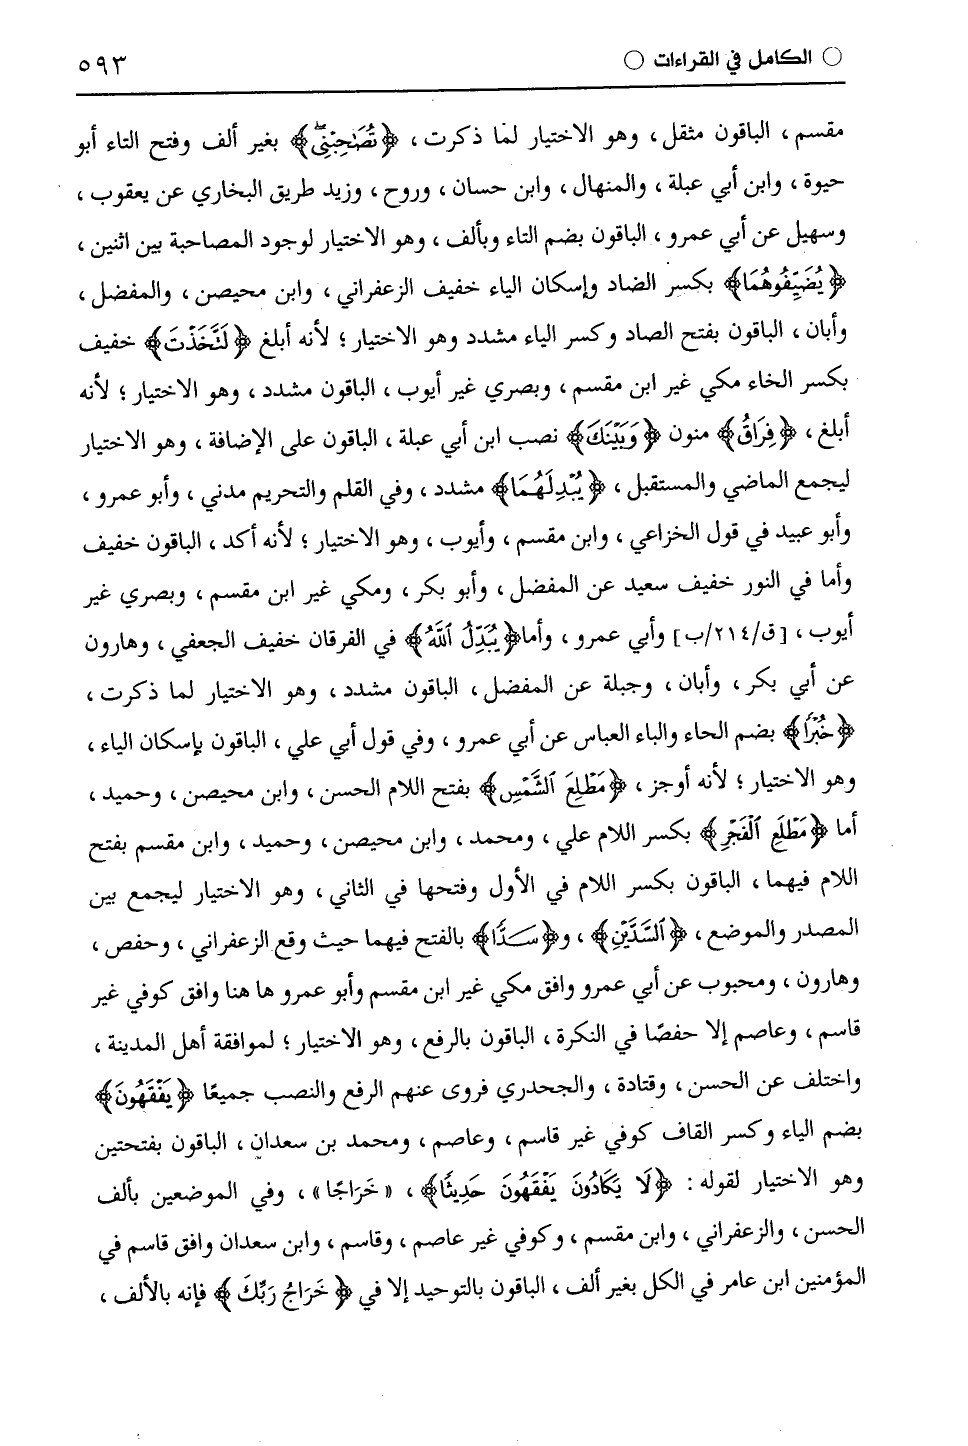 ○ الكامل في القراءات ○ ٥٩٣
مقسم ، الباقون مثقل ، وهو الاختيار لمَا ذكرت ، ﴿تُصَٰحِبْنِي﴾ بغير ألف وفتح التاء أبو
حيوة ، وابن أبي عبلة ، والمنهال ، وابن حسان ، وروح ، وزيد طريق البخاري عن يعقوب ،
وسهيل عن أبي عمرو ، الباقون بضم التاء وبألف ، وهو الاختيار لوجود المصاحبة بين اثنين ،
﴿يُضَيِّفُوهُمَا﴾ بكسر الضاد وإسكان الياء خفيف الزعفراني ، وابن محيصن ، والمفضل ،
وأبان ، الباقون بفتح الصاد وكسر الياء مشدد وهو الاختيار ؛ لأنه أبلغ ﴿لَتَّخَذْتَ﴾ خفيف
بكسر الخاء مكي غير ابن مقسم ، وبصري غير أيوب ، الباقون مشدد ، وهو الاختيار ؛ لأنه
أبلغ ، ﴿فِرَاقُ﴾ منون ﴿وَبَيْنَكَ﴾ نصب ابن أبي عبلة ، الباقون على الإضافة ، وهو الاختيار
ليجمع الماضي والمستقبل ، ﴿يُبْدِلَهُمَا﴾ مشدد ، وفي القلم والتحريم مدني ، وأبو عمرو ،
وأبو عبيد في قول الخزاعي ، وابن مقسم ، وأيوب ، وهو الاختيار ؛ لأنه أكد ، الباقون خفيف
وأما في النور خفيف سعيد عن المفضل ، وأبو بكر ، ومكي غير ابن مقسم ، وبصري غير
أيوب ، [ق/٢١٤/ب] وأبي عمرو ، وأما﴿يُبَدِّلُ ٱللَّهُ﴾ في الفرقان خفيف الجعفي ، وهارون
عن أبي بكر ، وأبان ، وجبلة عن المفضل ، الباقون مشدد ، وهو الاختيار لما ذكرت ،
﴿خُبْرًا﴾ بضم الحاء والباء العباس عن أبي عمرو ، وفي قول أبي علي ، الباقون بإسكان الياء ،
وهو الاختيار ؛ لأنه أوجز ، ﴿مَطْلِعَ ٱلشَّمْسِ﴾ بفتح اللام الحسن ، وابن محيصن ، وحميد ،
أما ﴿مَطْلَعِ ٱلْفَجْرِ﴾ بكسر اللام علي ، ومحمد ، وابن محيصن ، وحميد ، وابن مقسم بفتح
اللام فيهما ، الباقون بكسر اللام في الأول وفتحها في الثاني ، وهو الاختيار ليجمع بين
المصدر والموضع ، ﴿ٱلسَّدَّيْنِ﴾ ، و﴿سَدًّا﴾ بالفتح فيهما حيث وقع الزعفراني ، وحفص ،
وهارون ، ومحبوب عن أبي عمرو وافق مكي غير ابن مقسم وأبو عمرو ها هنا وافق كوفي غير
قاسم ، وعاصم إلا حفصًا في النكرة ، الباقون بالرفع ، وهو الاختيار ؛ لموافقة أهل المدينة ،
واختلف عن الحسن ، وقتادة ، والجحدري فروى عنهم الرفع والنصب جميعًا ﴿يَفْقَهُونَ﴾
بضم الياء وكسر القاف كوفي غير قاسم ، وعاصم ، ومحمد بن سعدان ، الباقون بفتحتين
وهو الاختيار لقوله : ﴿لَا يَكَادُونَ يَفْقَهُونَ حَدِيثًا﴾ ، «خَرَاجًا» ، وفي الموضعين بألف
الحسن ، والزعفراني ، وابن مقسم ، وكوفي غير عاصم ، وقاسم ، وابن سعدان وافق قاسم في
المؤمنين ابن عامر في الكل بغير ألف ، الباقون بالتوحيد إلا في ﴿خَرَاجُ رَبِّكَ﴾ فإنه بالألف ،